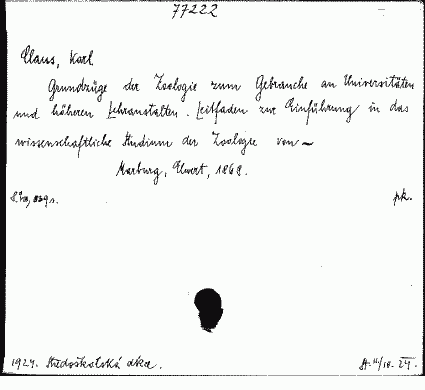 77222
Claus, Karl
Grundzüge der Zoologie zum Gebrauche an Universitäten
und höheren Lehranstalten. Leitfaden zur Einführung in das
wissenschaftliche Studium der Zoologie von ~
Marburg, Elwert, 1868.
8°, 839 s. pk.
1924. Středoškolská